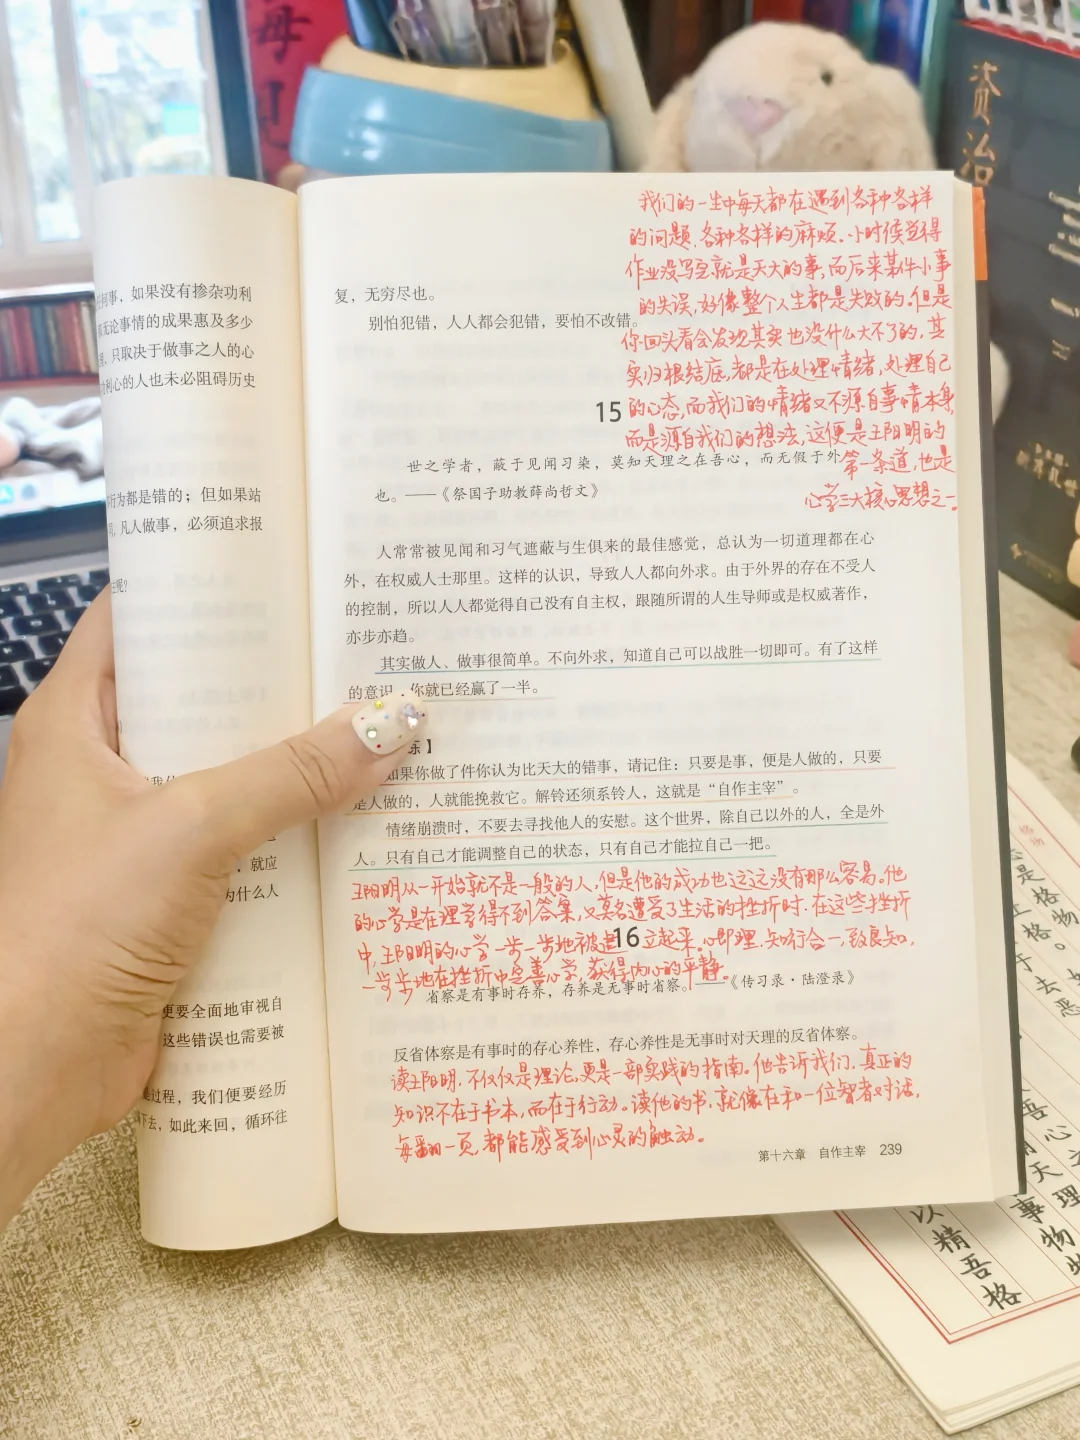 何事，如果没有掺杂功利
无论事情的成果惠及多少
只取决于做事之人的心
利心的人也未必阻碍历史
行为都是错的；但如果站
凡人做事，必须追求报
呢？
就应
为什么人
更要全面地审视自
这些错误也需要被
过程，我们便要经历
下去，如此来回，循环往
我们的一生中每天都在遇到各种各样
的问题，各种各样的麻烦。小时候觉得
作业没写完就是天大的事，而后来某件小事
的失误，好像整个人生都是失败的。但是
你回头看会发现其实也没什么大不了的，其
实归根结底，都是在处理情绪，处理自己
的心态，而我们的情绪又不源自事情本身，
而是源自我们的想法，这便是王阳明的
第一条道，也是
心学三大核心思想之一。
复，无穷尽也。
别怕犯错，人人都会犯错，要怕不改错。
15
世之学者，蔽于见闻习染，莫知天理之在吾心，而无假于外
也。——《祭国子助教薛尚哲文》
人常常被见闻和习气遮蔽与生俱来的最佳感觉，总认为一切道理都在心
外，在权威人士那里。这样的认识，导致人人都向外求。由于外界的存在不受人
的控制，所以人人都觉得自己没有自主权，跟随所谓的人生导师或是权威著作，
亦步亦趋。
其实做人、做事很简单。不向外求，知道自己可以战胜一切即可。有了这样
的意识，你就已经赢了一半。
练】
如果你做了件你认为比天大的错事，请记住：只要是事，便是人做的，只要
是人做的，人就能挽救它。解铃还须系铃人，这就是“自作主宰”。
情绪崩溃时，不要去寻找他人的安慰。这个世界，除自己以外的人，全是外
人。只有自己才能调整自己的状态，只有自己才能拉自己一把。
王阳明从一开始就不是一般的人，但是他的成功也远远没有那么容易。他
的心学是在理学得不到答案，又莫名遭受了生活的挫折时，在这些挫折
中，王阳明的心学一步一步地被建立起来。心即理，知行合一，致良知，
一步步地在挫折中完善心学，获得内心的平静。
16
省察是有事时存养，存养是无事时省察。——《传习录·陆澄录》
反省体察是有事时的存心养性，存心养性是无事时对天理的反省体察。
读王阳明，不仅仅是理论，更是一部实践的指南。他告诉我们，真正的
知识不在于书本，而在于行动。读他的书，就像在和一位智者对话，
每翻一页，都能感受到心灵的触动。
第十六章 自作主宰 239
资治
是格物
正格。
去
恶
吾心之
天理
事物
以精吾格